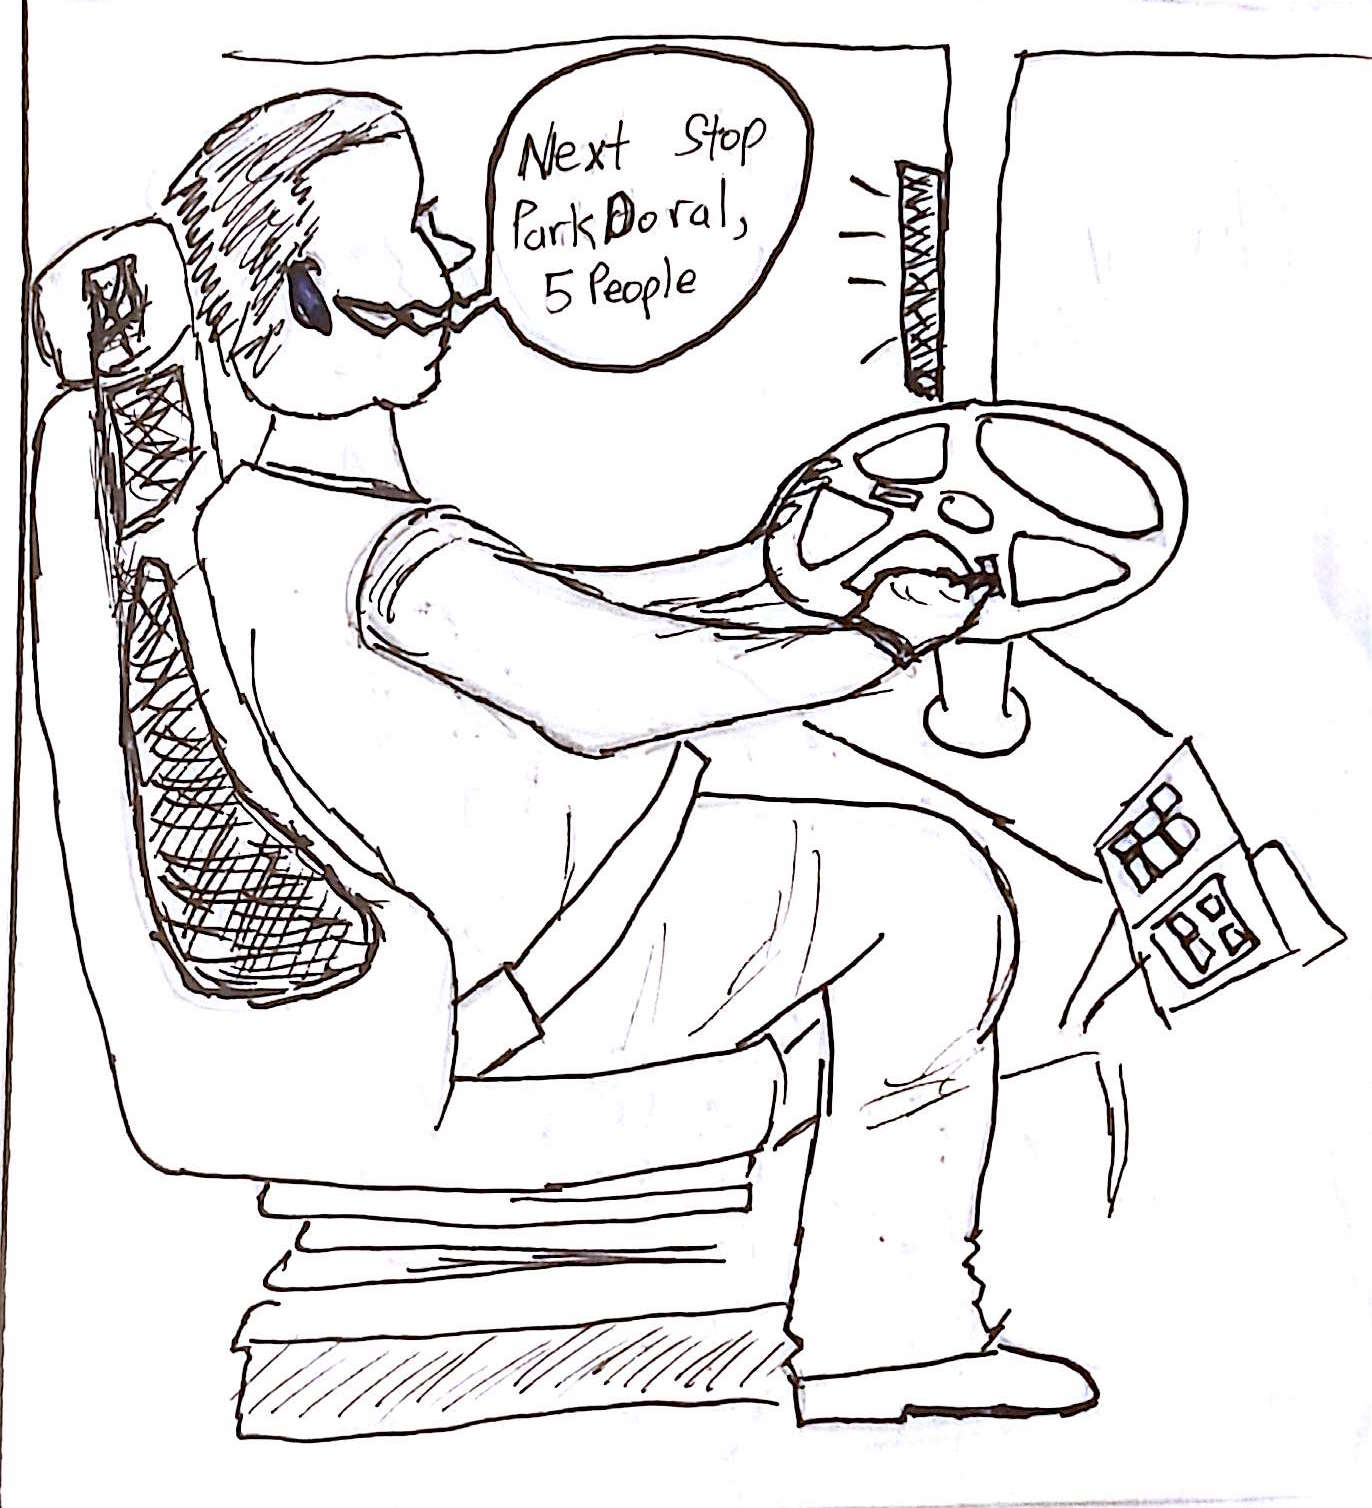 Next Stop
Park Doral,
5 People